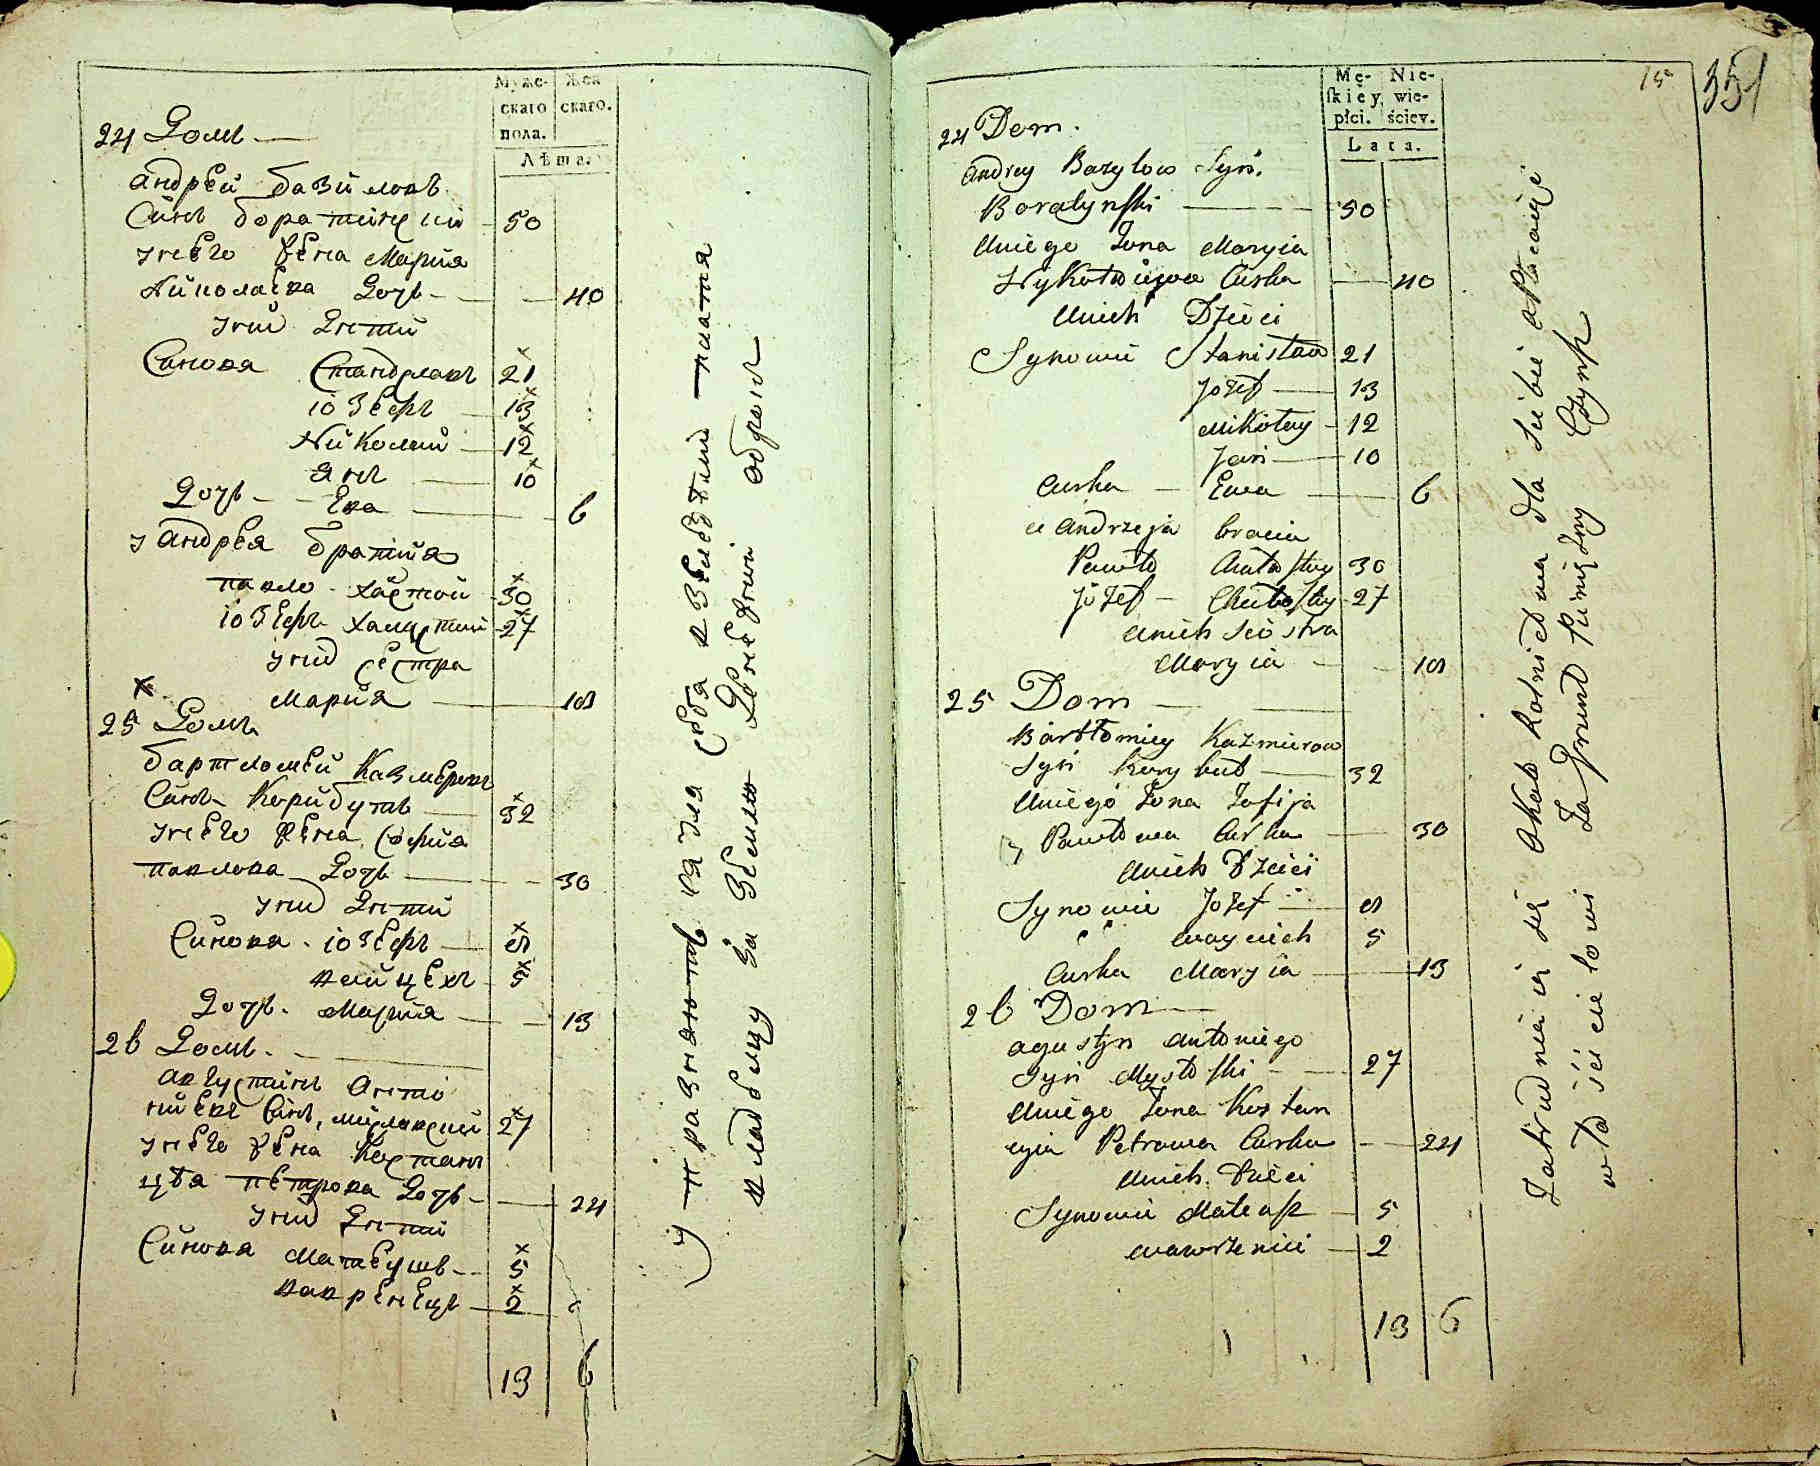 Муже-
скаго
пола.
Жен
скаго.
Лѣта.
24 Домъ
андрей базиловъ
Синъ боратинский 50
унего жена Мария
Николаева Дочь 40
уних Дети
Синова Станднлавъ 21
іозефъ 13
Николай 12
Янъ 10
Дочь Ева 6
у андрея братия
павло 30
іозефъ 27
уних сестра
Мария 18
25 Домъ
бартломей Казмеровъ
Синъ Корибутъ 32
унего жена София
павлова Дочь 30
уних Дети
Синова іозефъ 8
войцехъ 5
Дочь Мария 13
26 Домъ
августинъ анто
ниевъ Синъ, мисловский 27
унего жена Констан
цѣя петрова Дочь 24
уних Дети
Синова Матеушъ 5
вавренецъ 2
13 6
упражнаютъ ся для себя платя
владелцу за землю Денежний оброкъ
15
351
Mę-
skiey
płci.
Nie-
wie-
ściey.
Lata.
24 Dom.
Andrey Bazylow Syn.
Boratynski 50
Uniego Zona Maryia
Nykołaiewa Curka 40
Unich Dzieci
Synowie Stanisław 21
Jozef 13
Mikołay 12
Jan 10
Curka Ewa 6
u Andrzeja bracia
Paweł 30
Jozef 27
Unich Siostra
Maryia 18
25 Dom
Bartłomiey Kazmierow
Syn Korybut 32
Uniego Zona Zofija
Pawłowa Curka 30
Unich Dzieci
Synowie Jozef 8
Woyciech 5
Curka Maryia 13
26 Dom
Agustyn Antoniego
Syn Mysłoski 27
Uniego Zona Kostan
cyia Petrowa Curka 24
Unich Dzieci
Synowie Mateusz 5
Wawrzeniec 2
13 6
Zatrudniaią się około Rolnictwa dla Siebie opłacaiąc
właścicielowi za Grunt Pinięzny Czynsz